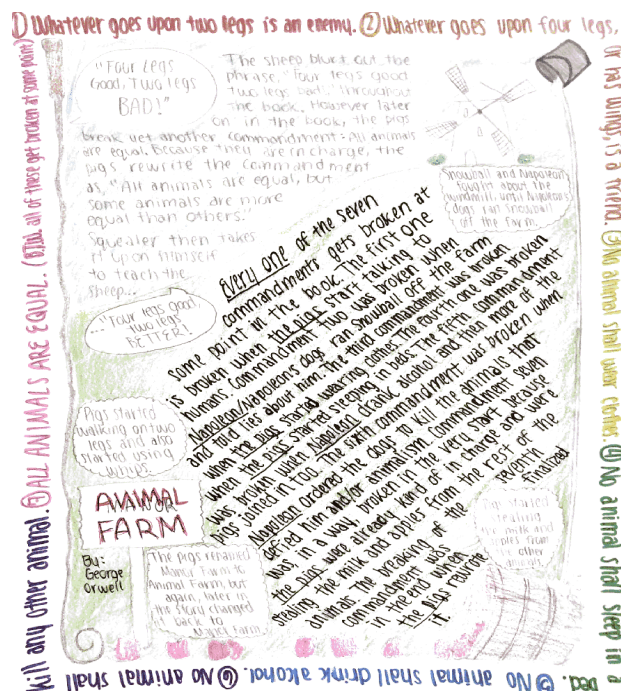 1) Whatever goes upon two legs is an enemy. ② Whatever goes upon four legs,
or has wings, is a friend. ③ No animal shall wear clothes. ④ No animal shall sleep in a
bed. ⑤ No animal shall drink alcohol. ⑥ No animal shall
kill any other animal. ⑦ ALL ANIMALS ARE EQUAL. (BTW all of these get broken at some point)
"FOUR LEGS
GOOD, TWO LEGS
BAD!"
The sheep blurt out the
phrase, "Four legs good
two legs bad!" throughout
the book. However later
on in the book, the pigs
break yet another commandment: All animals
are equal. Because they are in charge, the
pigs rewrite the commandment
as, "All animals are equal, but
some animals are more
equal than others."
Squealer then takes
it upon himself
to teach the
sheep...
..."Four legs good
two legs
BETTER!"
Snowball and Napoleon
fought about the
windmill, until Napoleon's
dogs ran Snowball
off the farm.
Every one of the seven
commandments gets broken at
some point in the book. The first one
is broken when the pigs start talking to
humans. Commandment two was broken when
Napoleon/Napoleon's dogs ran Snowball off the farm
and told lies about him. The third commandment was broken
when the pigs started wearing clothes. The fourth one was broken
when the pigs started sleeping in beds. The fifth commandment
was broken when Napoleon drank alcohol and then more of the
pigs joined in too. The sixth commandment was broken when
Napoleon ordered the dogs to kill the animals that
defied him and/or animalism. Commandment seven
was, in a way, broken in the very start because
the pigs were already kind of in charge and were
stealing the milk and apples from the rest of the
animals. The breaking of the seventh
commandment was finalized
in the end when
the pigs rewrote
it
Pigs started
walking on two
legs and also
started using
whips.
ANIMAL
FARM
By:
George
Orwell
The pigs renamed
Manor Farm to
Animal Farm, but
again, later in
the story changed
it back to
Manor Farm.
Pigs started
stealing
the milk and
apples from
the other
animals.